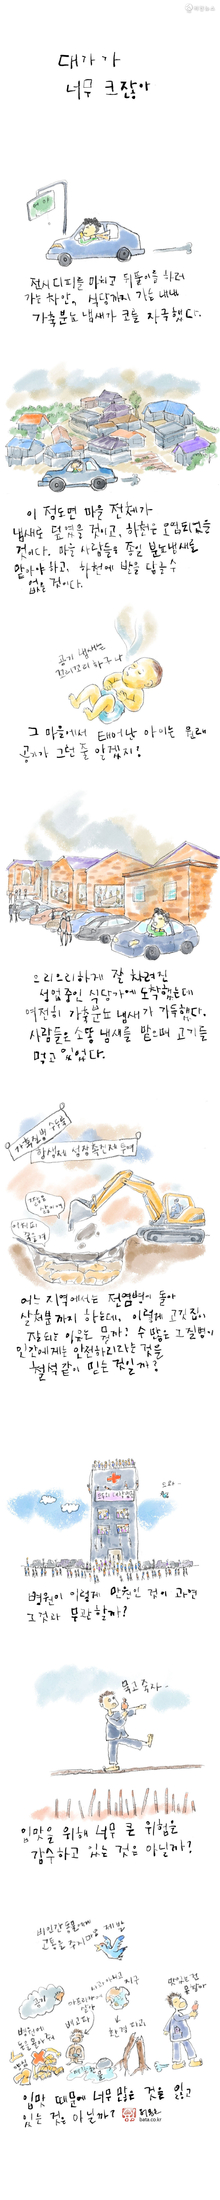 대가가
너무 크잖아
전시 디피를 마치고 뒤풀이를 하러
가는 차 안, 식당까지 가는 내내
가축분뇨 냄새가 코를 자극했다.
이 정도면 마을 전체가
냄새로 덮였을 것이고, 하천은 오염되었을
것이다. 마을 사람들은 종일 분뇨냄새를
맡아야 하고, 하천에 발을 담글 수
없을 것이다.
공기 냄새는
꼬리꼬리하구나
그 마을에서 태어난 아이는 원래
공기가 그런 줄 알겠지!
으리으리하게 잘 차려진
성업중인 식당가에 도착했는데
여전히 가축분뇨 냄새가 가득했다.
사람들은 소똥 냄새를 맡으며 고기를
먹고 있었다.
가축전염병
항생제 성장촉진제 투여
어느 지역에서는 전염병이 돌아
살처분까지 하는데, 이렇게 고깃집이
잘 되는 이유는 뭘까? 수많은 그 질병이
인간에게는 안전하리라는 것을
철석같이 믿는 것일까?
병원이 이렇게 만원인 것이 과연
그것과 무관할까?
먹고 죽자..
입맛을 위해 너무 큰 위험을
감수하고 있는 것은 아닐까?
비인간동물에게
고통을 주지마요 제발
공기
지구
배고파
환경파괴
맛있는 걸
입맛 때문에 너무 많은 것을 잃고
있는 것은 아닐까?
bata.co.kr